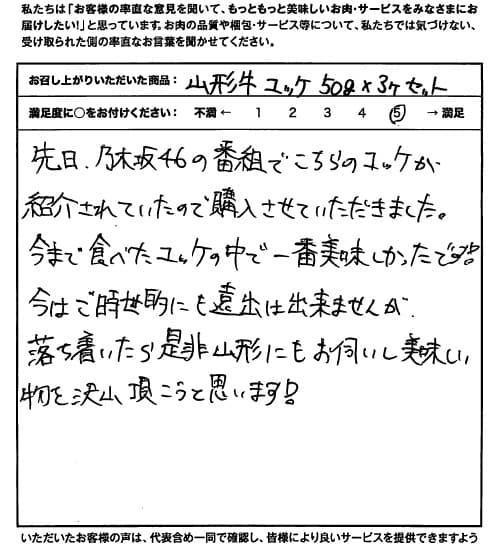 私たちは「お客様の率直な意見を聞いて、もっともっと美味しいお肉・サービスをみなさまにお
届けしたい!」と思っています。お肉の品質や梱包・サービス等について、私たちでは気づけない、
受け取られた側の率直なお言葉を聞かせてください。
お召し上がりいただいた商品： 山形牛ユッケ 50g×3ヶセット
満足度に○をお付けください： 不満 ← 1 2 3 4 5 → 満足
先日、乃木坂46の番組でこちらのユッケが
紹介されていたので購入させていただきました。
今まで食べたユッケの中で一番美味しかったです!!
今はご時世的にも遠出は出来ませんが、
落ち着いたら是非山形にもお伺いし美味しい
物を沢山頂こうと思います!!
いただいたお客様の声は、代表含め一同で確認し、皆様により良いサービスを提供できますよう